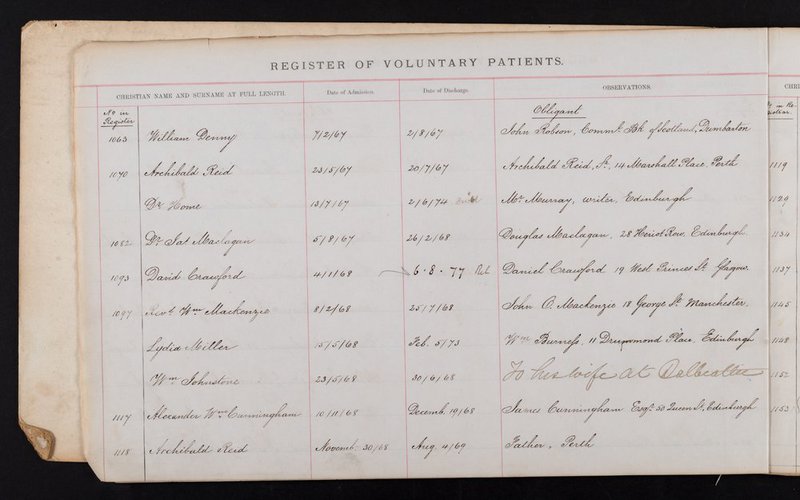 REGISTER OF VOLUNTARY PATIENTS.
CHRISTIAN NAME AND SURNAME AT FULL LENGTH. Date of Admission. Date of Discharge. OBSERVATIONS. CHRI
No in Register Obligant
1063 William Denny 7/2/67 2/8/67 John Robson, Comml. Bk of Scotland, Dumbarton
1070 Archibald Reid 23/5/67 20/7/67 Archibald Reid, Sr, 14 Marshall Place, Perth 1119
Dr Home 13/7/67 2/6/74 Mr Murray, writer, Edinburgh 1120
1082 Dr Jas Maclagan 5/8/67 26/2/68 Douglas Maclagan, 28 Heriot Row, Edinburgh. 1134
1093 David Crawford 4/1/68 6.8.77 Rel Daniel Crawford 19 West Princes St Glasgow. 1137
1097 Revd Wm Mackenzie 8/2/68 25/7/68 John O. Mackenzie 18 George St Manchester. 1145
Lydia Miller 15/5/68 Feb. 5/73 Wm Burness, 11 Drummond Place, Edinburgh 1148
Wm Johnstone 23/5/68 30/6/68 To his wife at Dalbeattie 1152
1117 Alexander Wm Cunningham 10/11/68 Decemb. 19/68 James Cunningham Esqr. 50 Queen St, Edinburgh 1153
1118 Archibald Reid Novemb. 30/68 Aug. 4/69 Father, Perth